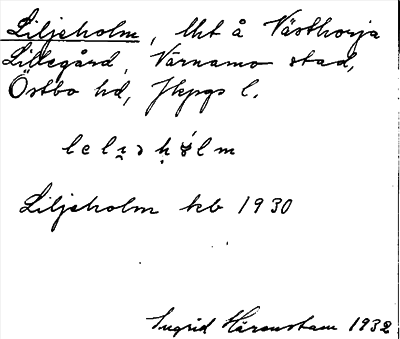 Liljeholm, lht å Västhorja
Lillegård, Värnamo stad,
Östbo hd, Jkpgs l.
Liljeholm kb 1930
Ingrid Härenstam 1932